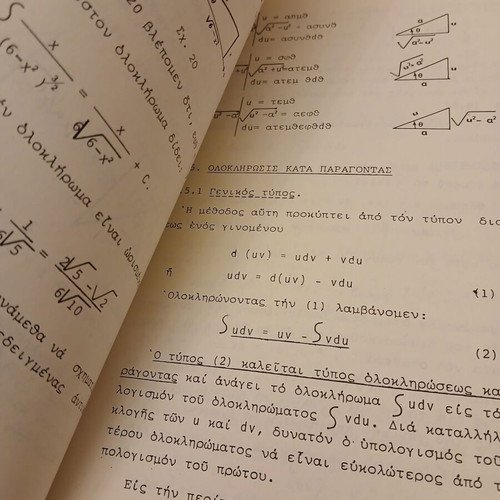 20 βλέπομεν ὅτι,
∫ x / (6-x²)^3/2 = x / 6√6-x² + C.
ὁλοκλήρωμα
1 / 6√5 = 2√5-√2 / 6√10
Σχ. 20
√6-x²
u = aημθ
√a²-u² = aσυνθ
du= aσυνθdθ
a
u
θ
√a²-u²
du= aτεμ²θdθ
a
u
θ
u = aτεμθ
√u²-a² = aεφθ
du= aτεμθεφθdθ
u
√u²-a²
θ
a
5. ΟΛΟΚΛΗΡΩΣΙΣ ΚΑΤΑ ΠΑΡΑΓΟΝΤΑΣ
5.1 Γενικός τύπος.
Ἡ μέθοδος αὕτη προκύπτει ἀπό τόν τύπον
εως ἑνός γινομένου
d (uv) = udv + vdu
ἤ udv = d(uv) - vdu (1)
Ὁλοκληρώνοντας τήν (1) λαμβάνομεν:
∫udv = uv - ∫vdu (2)
Ὁ τύπος (2) καλεῖται τύπος ὁλοκληρώσεως κα
ράγοντας καί ἀνάγει τό ὁλοκλήρωμα ∫udv εἰς τό
λογισμόν τοῦ ὁλοκληρώματος ∫vdu. Διά καταλλήλ
κλογῆς τῶν u καί dv, δυνατόν ὁ ὑπολογισμός τοῦ
τέρου ὁλοκληρώματος νά εἶναι εὐκολώτερος ἀπό τ
πολογισμόν τοῦ πρώτου.
Εἰς τήν